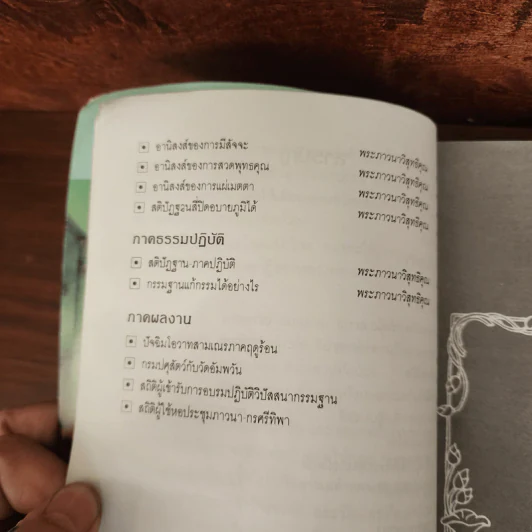 อานิสงส์ของการมีสัจจะ พระภาวนาวิสุทธิคุณ
อานิสงส์ของการสวดพุทธคุณ พระภาวนาวิสุทธิคุณ
อานิสงส์ของการแผ่เมตตา พระภาวนาวิสุทธิคุณ
สติปัฏฐานสี่ปิดอบายภูมิได้ พระภาวนาวิสุทธิคุณ
ภาคธรรมปฏิบัติ
สติปัฏฐาน-ภาคปฏิบัติ พระภาวนาวิสุทธิคุณ
กรรมฐานแก้กรรมได้อย่างไร พระภาวนาวิสุทธิคุณ
ภาคผลงาน
ปัจฉิมโอวาทสามเณรภาคฤดูร้อน
กรมปศุสัตว์กับวัดอัมพวัน
สถิติผู้เข้ารับการอบรมปฏิบัติวิปัสสนากรรมฐาน
สถิติผู้ใช้หอประชุมภาวนา-กรศรีทิพา